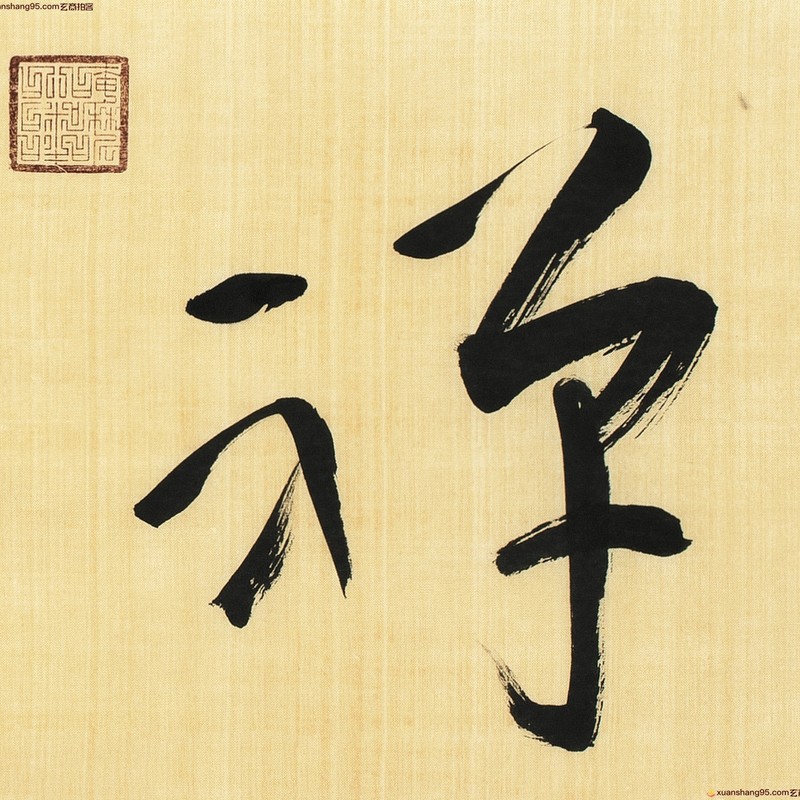 anshang95.com玄商拍客
禅
xuanshang95.com玄